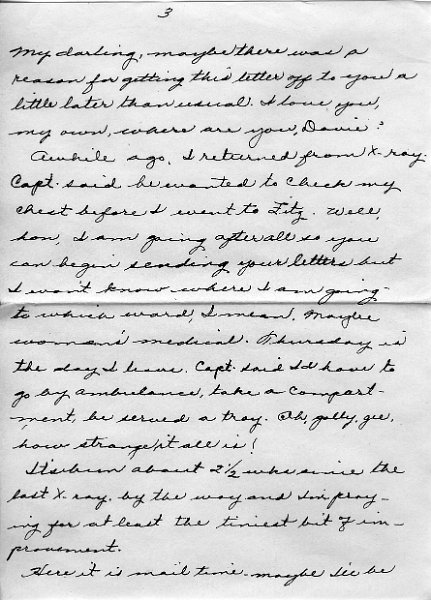 3
My darling, maybe there was a
reason for getting this letter off to you a
little later than usual. I love you,
my own, where are you, Davie?
Awhile ago, I returned from X-ray.
Capt. said he wanted to check my
chest before I went to Fitz. Well,
hon, I am going after all so you
can begin sending your letters but
I won't know where I am going-
to which ward, I mean. Maybe
women's medical. Thursday is
the day I leave. Capt. said I'd have to
go by ambulance, take a compart-
ment, be served a tray. Oh, golly, gee,
how strange it all is!
It's been about 2 1/2 wks since the
last X-ray, by the way and I'm pray-
ing for at least the tiniest bit of im-
provement.
Here it is mail time. maybe I'll be